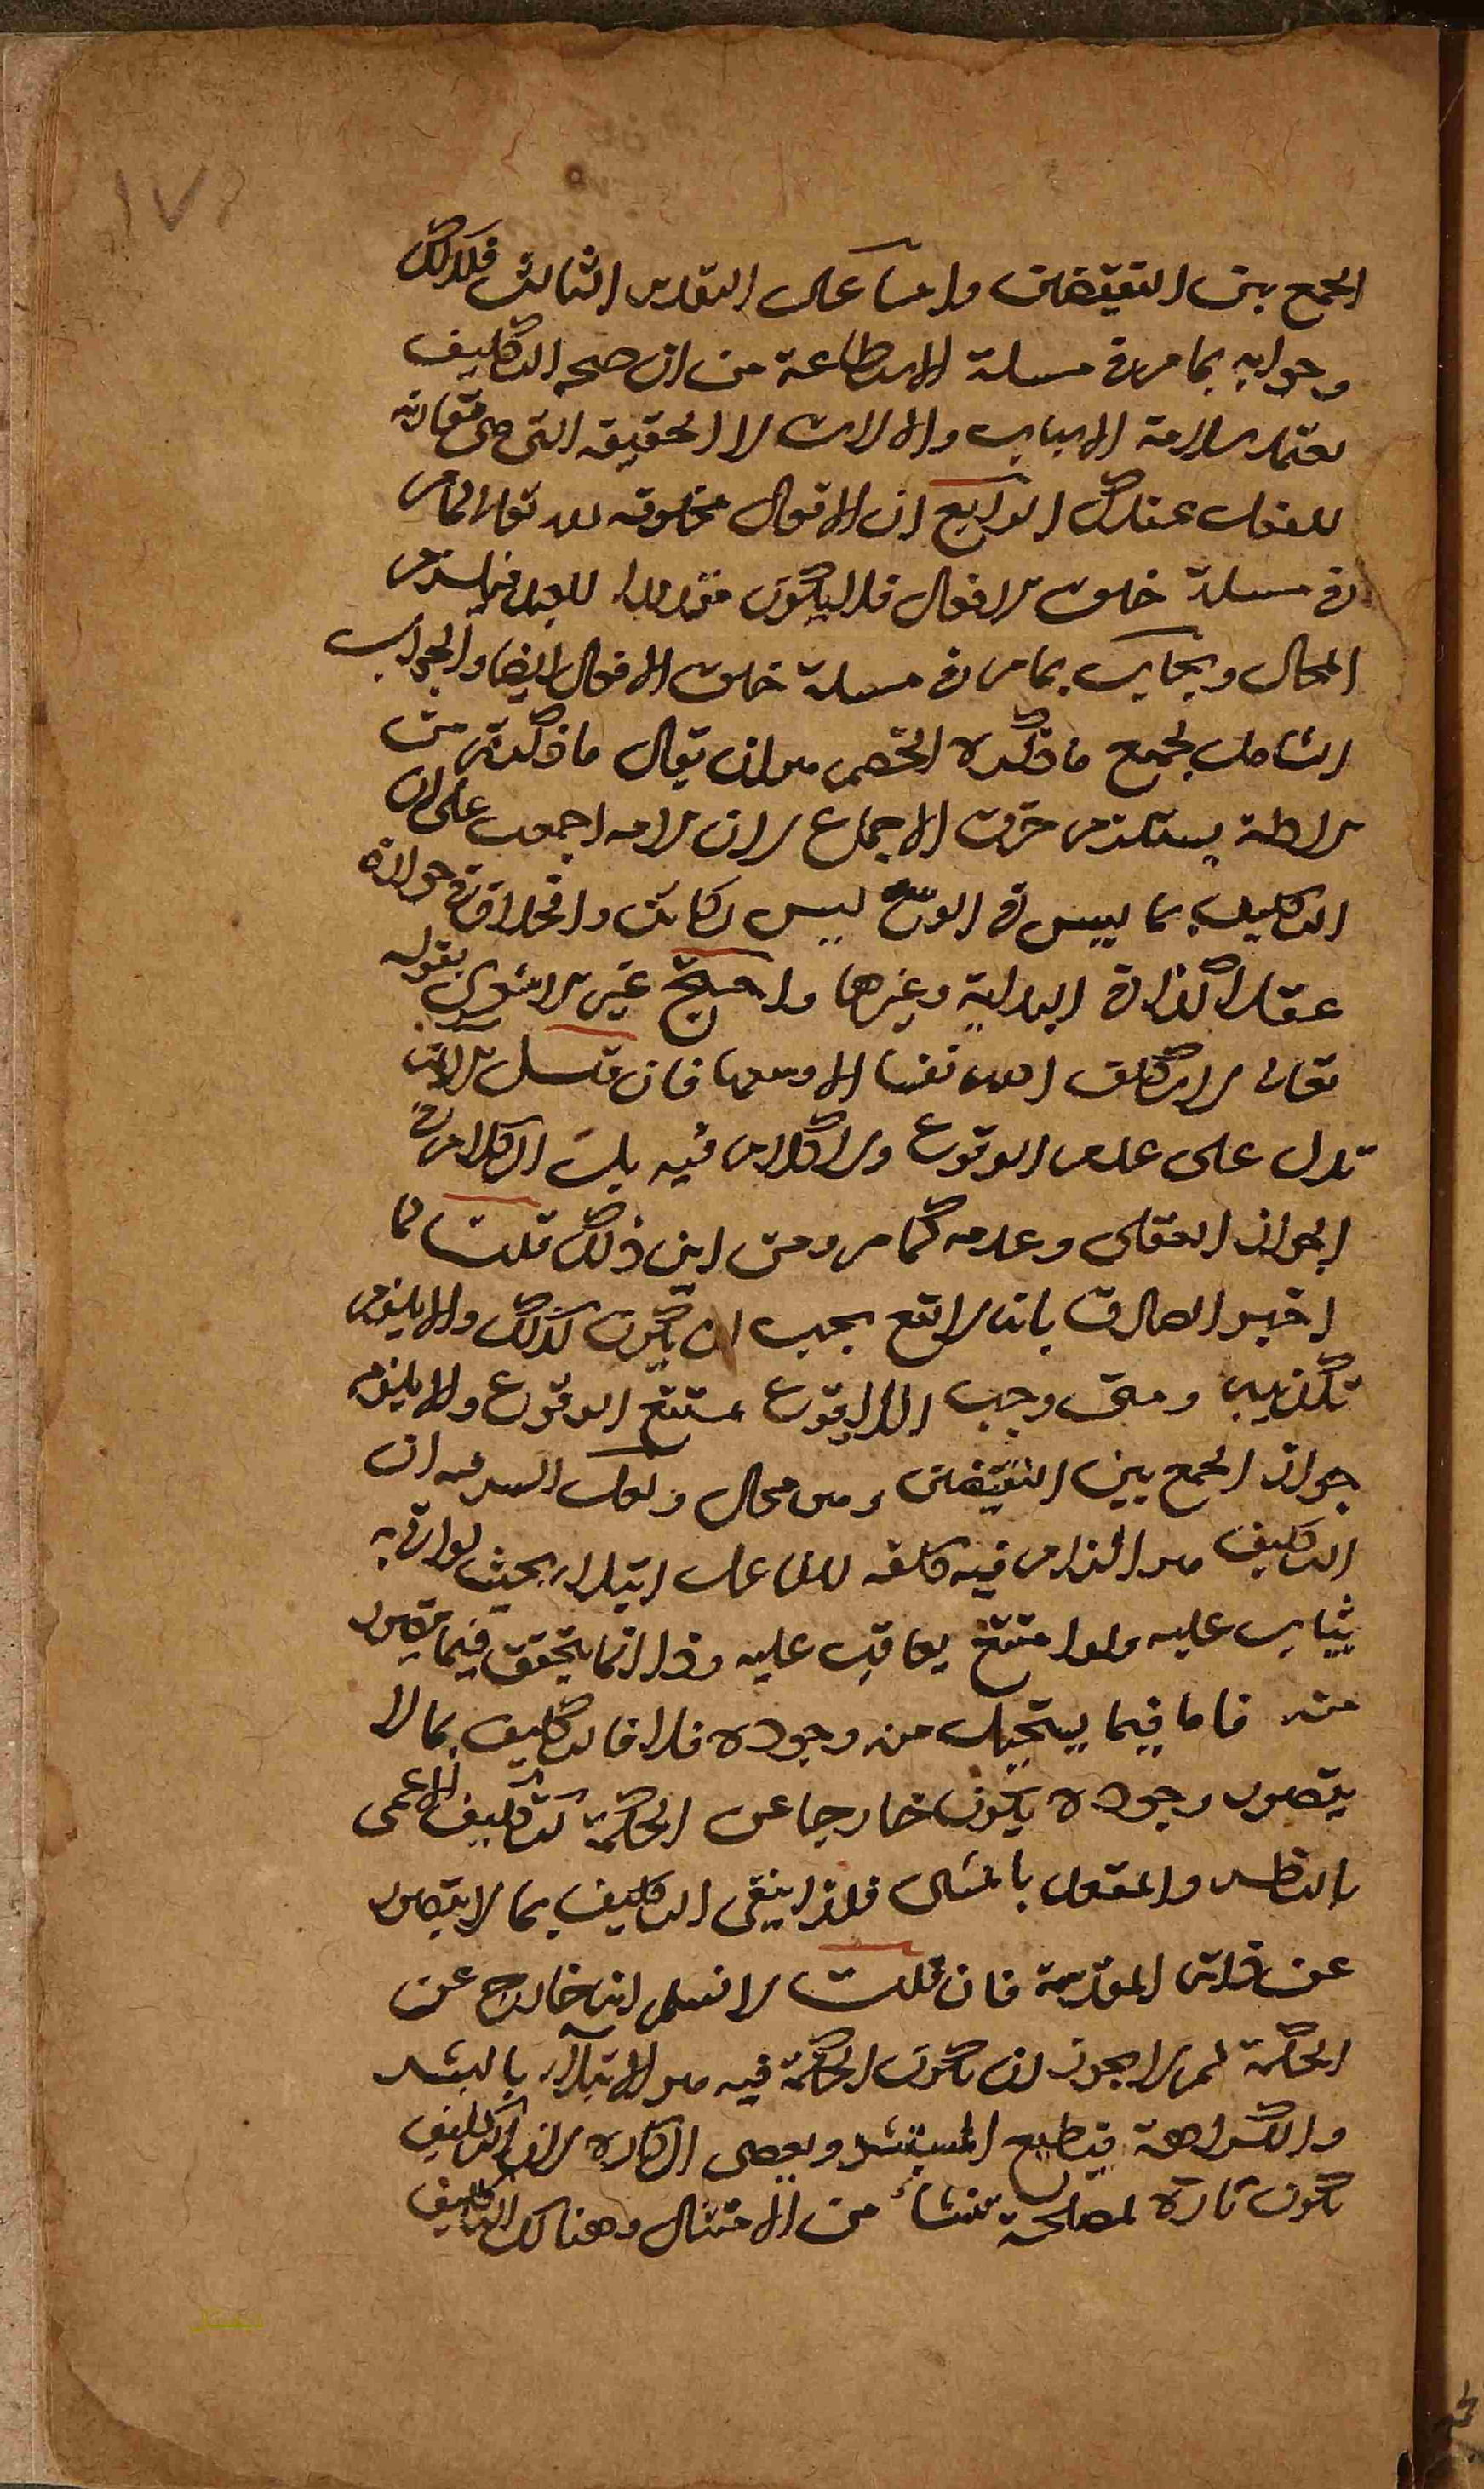 ١٧٢
الجمع بين النقيضين واما على التقدير الثالث فلذلك
وجوابه بما مر فى مسلة الاستطاعة من ان صحه التكليف
يعتمد سلامة الاسباب والالات لا الحقيقه التى هى مقارنه
للفعل عندك الرابع ان الافعال مخلوقه لله تعالى لما مر
فى مسلة خلق الافعال فلا يكون مقدورا للعبد فيلزم
المحال ويجاب بما مر فى مسلة خلق الافعال ايضا والجواب
الشامل لجميع ما ذكره الخصم هو ان يقال ما ذكرتم من
الادلة يستلزم خرق الاجماع لان الامه اجمعت على ان
التكليف بما ليس فى الوسع ليس بكائن والخلاف فى جوازه
عقلا كذا فى البداية وغيرها واحتج غير الاشعرى بقوله
تعالى لا يكلف الله نفسا الا وسعها فان قيل الاية
تدل على عدم الوقوع ولا كلام فيه بل الكلام فى
الجواز العقلى وعدمه كما مر ومن اين ذلك قلت لما
اخبر الصادق بانه لا يقع يجب ان يكون كذلك والا يلزم
تكذيبه ومتى وجب اللاوقوع يمتنع الوقوع والا يلزم
جواز الجمع بين النقيضين وهو محال ولعل السر فيه ان
التكليف هو الزام فيه كلفه للفاعل ابتلاء بحيث لو اتى به
يثاب عليه ولو امتنع يعاقب عليه وذا انما يتحقق فيما يتصور
منه فاما فيما يستحيل منه وجوده فلا فالتكليف بما لا
يتصور وجوده يكون خارجا عن الحكمة كتكليف الاعمى
بالنظر والمقعد بالمشى فلذا ينفى التكليف بما لا يتصور
عن ذاته المقدسة فان قلت لا نسلم انه خارج عن
الحكمة لم لا يجوز ان تكون الحكمة فيه هو الابتلاء بالبشر
والكراهة فيطيع المستبشر ويعصى الكاره لان التكليف
تكون تارة لمصلحة تنشأ من الامتثال وهناك التكليف